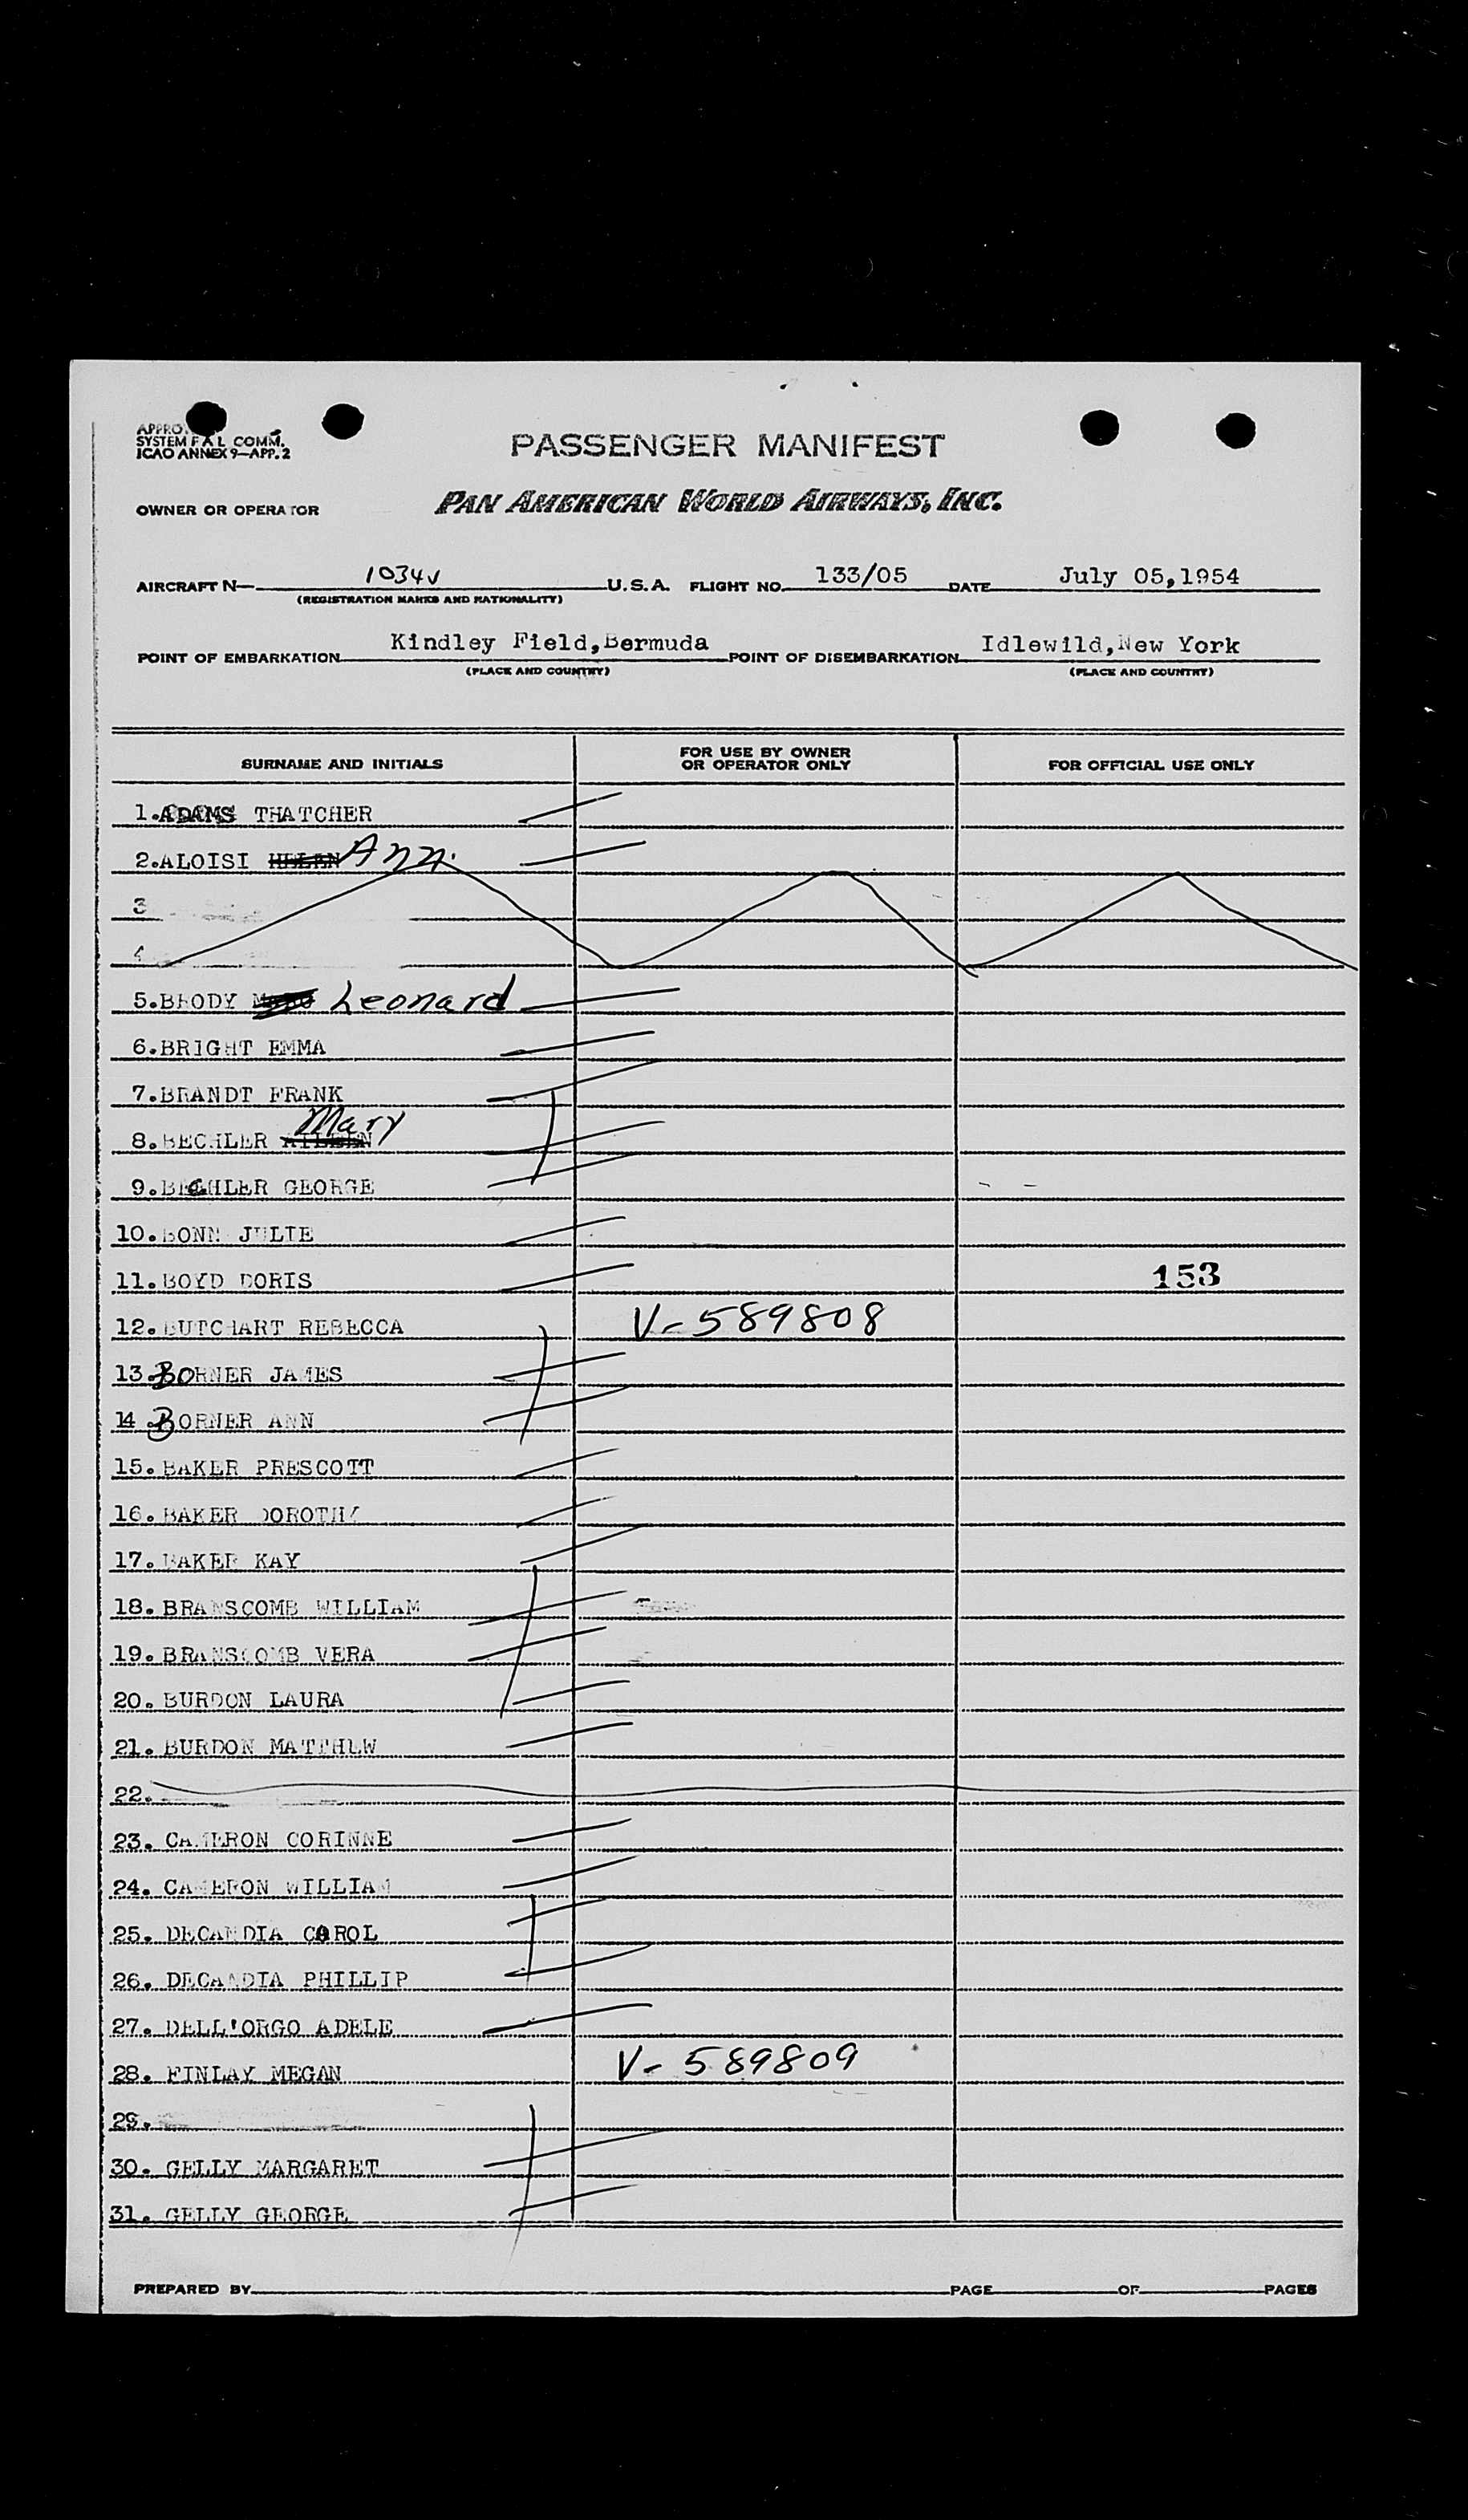 SYSTEM F A L COMM.
ICAO ANNEX 9—APP. 2
PASSENGER MANIFEST
OWNER OR OPERATOR PAN AMERICAN WORLD AIRWAYS, INC.
AIRCRAFT N— 1034V U.S.A. FLIGHT NO. 133/05 DATE July 05,1954
(REGISTRATION MARKS AND NATIONALITY)
POINT OF EMBARKATION Kindley Field,Bermuda POINT OF DISEMBARKATION Idlewild,New York
(PLACE AND COUNTRY) (PLACE AND COUNTRY)
SURNAME AND INITIALS FOR USE BY OWNER OR OPERATOR ONLY FOR OFFICIAL USE ONLY
1.ADAMS THATCHER
2.ALOISI HELEN Ann.
3
4
5.BRODY Leonard
6.BRIGHT EMMA
7.BRANDT FRANK
8.BECHLER AILEEN Mary
9.BECHLER GEORGE
10.BONN JULIE
11.BOYD DORIS 153
12.BUTCHART REBECCA V-589808
13.BORNER JAMES
14.BORNER ANN
15.BAKER PRESCOTT
16.BAKER DOROTHY
17.BAKER KAY
18.BRANSCOMB WILLIAM
19.BRANSCOMB VERA
20.BURDON LAURA
21.BURDON MATTHEW
22.
23. CAMERON CORINNE
24. CAMERON WILLIAM
25. DECANDIA CAROL
26. DECANDIA PHILLIP
27. DELL'ORGO ADELE
28. FINLAY MEGAN V-589809
29.
30. GELLY MARGARET
31. GELLY GEORGE
PREPARED BY PAGE OF PAGES